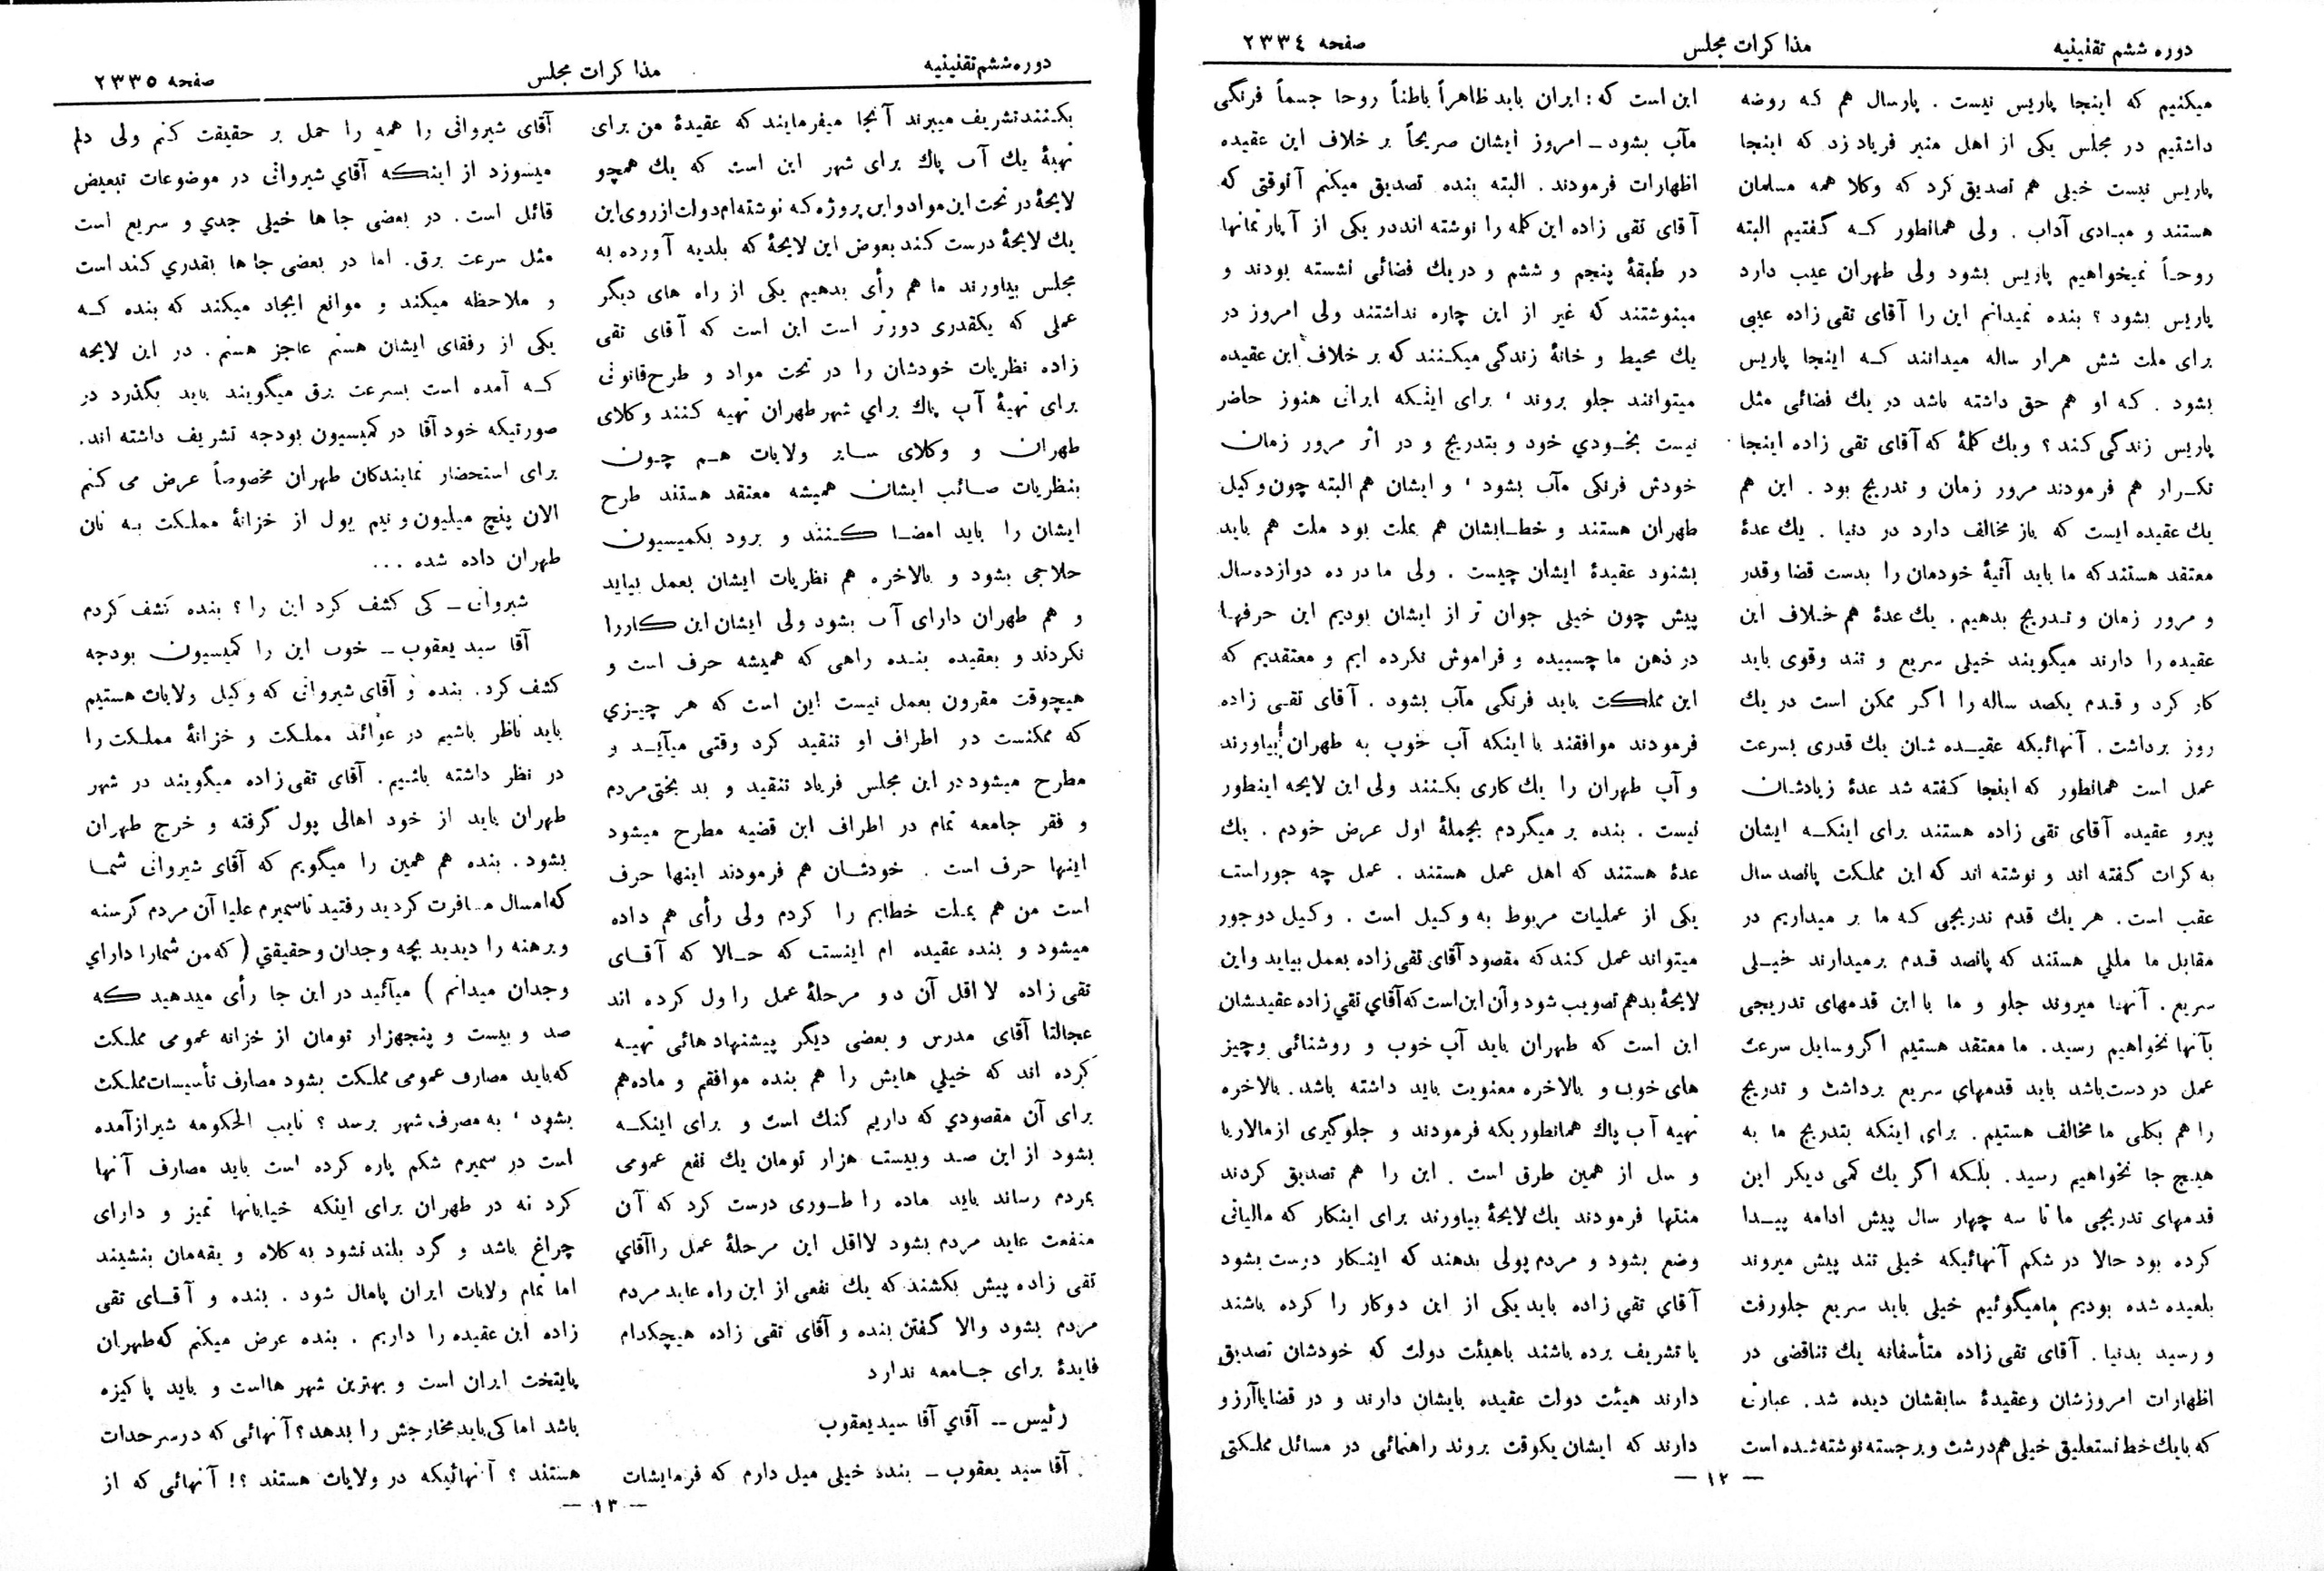 دوره ششم تقنینیه
مذاکرات مجلس
صفحه ۲۳۳٤
میکنیم که اینجا پاریس نیست . پارسال هم که روضه
داشتیم در مجلس یکی از اهل منبر فریاد زد که اینجا
پاریس نیست خیلی هم تصدیق کرد که وکلا همه مسلمان
هستند و مبادی آداب . ولی همانطور که گفتیم البته
روحاً نمیخواهیم پاریس بشود ولی طهران عیب دارد
پاریس بشود ؟ بنده نمیدانم این را آقای تقی زاده عیبی
برای ملت شش هزار ساله میدانند که اینجا پاریس
بشود . که او هم حق داشته باشد در یك فضائی مثل
پاریس زندگی کند ؟ ویك کلمهٔ که آقای تقی زاده اینجا
تکرار هم فرمودند مرور زمان و تدریج بود . این هم
یك عقیده ایست که باز مخالف دارد در دنیا . یك عدهٔ
معتقد هستند که ما باید آتیهٔ خودمان را بدست قضا وقدر
و مرور زمان و تدریج بدهیم . یك عدهٔ هم خلاف این
عقیده را دارند میگویند خیلی سریع و تند وقوی باید
کار کرد و قدم یکصد ساله را اگر ممکن است در یك
روز برداشت . آنهائیکه عقیده شان یك قدری بسرعت
عمل است همانطور که اینجا گفته شد عدهٔ زیادشان
پیرو عقیده آقای تقی زاده هستند برای اینکه ایشان
به کرات گفته اند و نوشته اند که این مملکت پانصد سال
عقب است . هر یك قدم تدریجی که ما بر میداریم در
مقابل ما مللی هستند که پانصد قدم برمیدارند خیلی
سریع . آنها میروند جلو و ما با این قدمهای تدریجی
بآنها نخواهیم رسید . ما معتقد هستیم اگر وسایل سرعت
عمل در دست باشد باید قدمهای سریع برداشت و تدریج
را هم بکلی ما مخالف هستیم . برای اینکه بتدریج ما به
هیچ جا نخواهیم رسید . بلکه اگر یك کمی دیگر این
قدمهای تدریجی ما تا سه چهار سال پیش ادامه پیدا
کرده بود حالا در شکم آنهائیکه خیلی تند پیش میروند
بلعیده شده بودیم مامیگوئیم خیلی باید سریع جلورفت
و رسید بدنیا . آقای تقی زاده متأسفانه یك تناقضی در
اظهارات امروزشان وعقیدهٔ سابقشان دیده شد . عبارتی
که بایك خط نستعلیق خیلی هم درشت و برجسته نوشته شده است
این است که : ایران باید ظاهراً باطناً روحا جسماً فرنگی
مآب بشود ــ امروز ایشان صریحاً بر خلاف این عقیده
اظهارات فرمودند . البته بنده تصدیق میکنم آنوقتی که
آقای تقی زاده این کلمه را نوشته انددر یکی از آپارتمانها
در طبقهٔ پنجم و ششم و در یك فضائی نشسته بودند و
مینوشتند که غیر از این چاره نداشتند ولی امروز در
یك محیط و خانهٔ زندگی میکنند که بر خلاف این عقیده
میتوانند جلو بروند ، برای اینکه ایرانی هنوز حاضر
نیست بخودی خود و بتدریج و در اثر مرور زمان
خودش فرنگی مآب بشود ، و ایشان هم البته چون وکیل
طهران هستند و خطابشان هم بملت بود ملت هم باید
بشنود عقیدهٔ ایشان چیست . ولی ما در ده دوازده سال
پیش چون خیلی جوان تر از ایشان بودیم این حرفها
در ذهن ما چسبیده و فراموش نکرده ایم و معتقدیم که
این مملکت باید فرنگی مآب بشود . آقای تقی زاده
فرمودند موافقند با اینکه آب خوب به طهران بیاورند
و آب طهران را یك کاری بکنند ولی این لایحه اینطور
نیست . بنده بر میگردم بجملهٔ اول عرض خودم . یك
عدهٔ هستند که اهل عمل هستند . عمل چه جوراست
یکی از عملیات مربوط به وکیل است . وکیل دو جور
میتواند عمل کند که مقصود آقای تقی زاده بعمل بیاید واین
لایحهٔ بدهم تصویب شود و آن این است که آقاي تقي زاده عقیدشان
این است که طهران باید آب خوب و روشنائی وچیز
های خوب و بالاخره معنویت باید داشته باشد . بالاخره
تهیه آب پاك همانطوریکه فرمودند و جلوگیری از مالاریا
و سل از همین طرق است . این را هم تصدیق کردند
منتها فرمودند یك لایحهٔ بیاورند برای اینکار که مالیاتی
وضع بشود و مردم پولی بدهند که اینکار درست بشود
آقاي تقی زاده باید یکی از این دوکار را کرده باشند
یا تشریف برده باشند باهیئت دولت که خودشان تصدیق
دارند هیئت دولت عقیده بایشان دارند و در قضایاآرزو
دارند که ایشان یکوقت بروند راهنمائی در مسائل مملکتی
ــ ۱۲ ــ
دوره ششم تقنینیه
مذاکرات مجلس
صفحه ۲۳۳٥
بکنند تشریف میبرند آنجا میفرمایند که عقیدهٔ من برای
تهیهٔ یك آب پاك برای شهر این است که یك همچو
لایحهٔ در تحت این مواد و این پروژه که نوشته ام دولت از روی این
یك لایحهٔ درست کند بعوض این لایحهٔ که بلدیه آورده به
مجلس بیاورند ما هم رأی بدهیم یکی از راه های دیگر
عملی که یکقدری دورتر است این است که آقای تقی
زاده نظریات خودشان را در تحت مواد و طرح قانونی
برای تهیهٔ آب پاك برای شهر طهران تهیه کنند وکلای
طهران و وکلای سایر ولایات هم چون
بنظریات صائب ایشان همیشه معتقد هستند طرح
ایشان را باید امضا کنند و برود بکمیسیون
حلاجی بشود و بالاخره هم نظریات ایشان بعمل بیاید
و هم طهران دارای آب بشود ولی ایشان این کاررا
نکردند و بعقیده بنده راهی که همیشه حرف است و
هیچوقت مقرون بعمل نیست این است که هر چیزی
که ممکنست در اطراف او تنقید کرد وقتی میآید و
مطرح میشود در این مجلس فریاد تنقید و بد بختی مردم
و فقر جامعه تمام در اطراف این قضیه مطرح میشود
اینها حرف است . خودشان هم فرمودند اینها حرف
است من هم بملت خطابم را کردم ولی رأی هم داده
میشود و بنده عقیده ام اینست که حالا که آقای
تقی زاده لااقل آن دو مرحلهٔ عمل را ول کرده اند
عجالتا آقای مدرس و بعضی دیگر پیشنهاد هائی تهیه
کرده اند که خیلي هایش را هم بنده موافقم و ماده هم
برای آن مقصودي که داریم گنك است و برای اینکه
بشود از این صد و بیست هزار تومان یك نفع عمومی
بمردم رساند باید ماده را طوری درست کرد که آن
منفعت عاید مردم بشود لااقل این مرحلهٔ عمل راآقاي
تقی زاده پیش بکشند که یك نفعی از این راه عاید مردم
مردم بشود والا گفتن بنده و آقای تقی زاده هیچکدام
فایدهٔ برای جامعه ندارد
رئیس ــ آقاي آقا سید یعقوب
آقا سید یعقوب ــ بنده خیلی میل دارم که فرمایشات
آقای شیروانی را همه را حمل بر حقیقت کنم ولی دلم
میسوزد از اینکه آقاي شیروانی در موضوعات تبعیض
قائل است . در بعضی جا ها خیلی جدی و سریع است
مثل سرعت برق . اما در بعضی جا ها بقدری کند است
و ملاحظه میکند و موانع ایجاد میکند که بنده که
یکی از رفقای ایشان هستم عاجز هستم . در این لایحه
که آمده است بسرعت برق میگویند باید بگذرد در
صورتیکه خود آقا در کمیسیون بودجه تشریف داشته اند .
برای استحضار نمایندگان طهران مخصوصاً عرض می کنم
الان پنج میلیون و نیم پول از خزانهٔ مملکت به نان
طهران داده شده ...
شیروانی ــ کی کشف کرد این را ؟ بنده کشف کردم
آقا سید یعقوب ــ خوب این را کمیسیون بودجه
کشف کرد . بنده و آقای شیروانی که وکیل ولایات هستیم
باید ناظر باشیم در عوائد مملکت و خزانهٔ مملکت را
در نظر داشته باشیم . آقای تقی زاده میگویند در شهر
طهران باید از خود اهالی پول گرفته و خرج طهران
بشود . بنده هم همین را میگویم که آقای شیروانی شما
که امسال مسافرت کردید رفتید تاسمیرم علیا آن مردم گرسنه
و برهنه را دیدید بچه وجدان وحقیقتي ( که من شمارا داراي
وجدان میدانم ) میآئید در این جا رأی میدهید که
صد و بیست و پنجهزار تومان از خزانه عمومی مملکت
که باید مصارف عمومی مملکت بشود مصارف تأسیسات مملکت
بشود ، به مصرف شهر برسد ؟ نایب الحکومه شیراز آمده
است در سمیرم شکم پاره کرده است باید مصارف آنها
کرد نه در طهران برای اینکه خیابانها تمیز و دارای
چراغ باشد و گرد بلند نشود به کلاه و یقه مان بنشیند
اما تمام ولایات ایران پامال شود . بنده و آقای تقی
زاده این عقیده را داریم . بنده عرض میکنم که طهران
پایتخت ایران است و بهترین شهر هااست و باید پاکیزه
باشد اما کی باید مخارجش را بدهد ؟ آنهائی که در سرحدات
هستند ؟ آنهائیکه در ولایات هستند ؟! آنهائی که از
ــ ۱۳ ــ